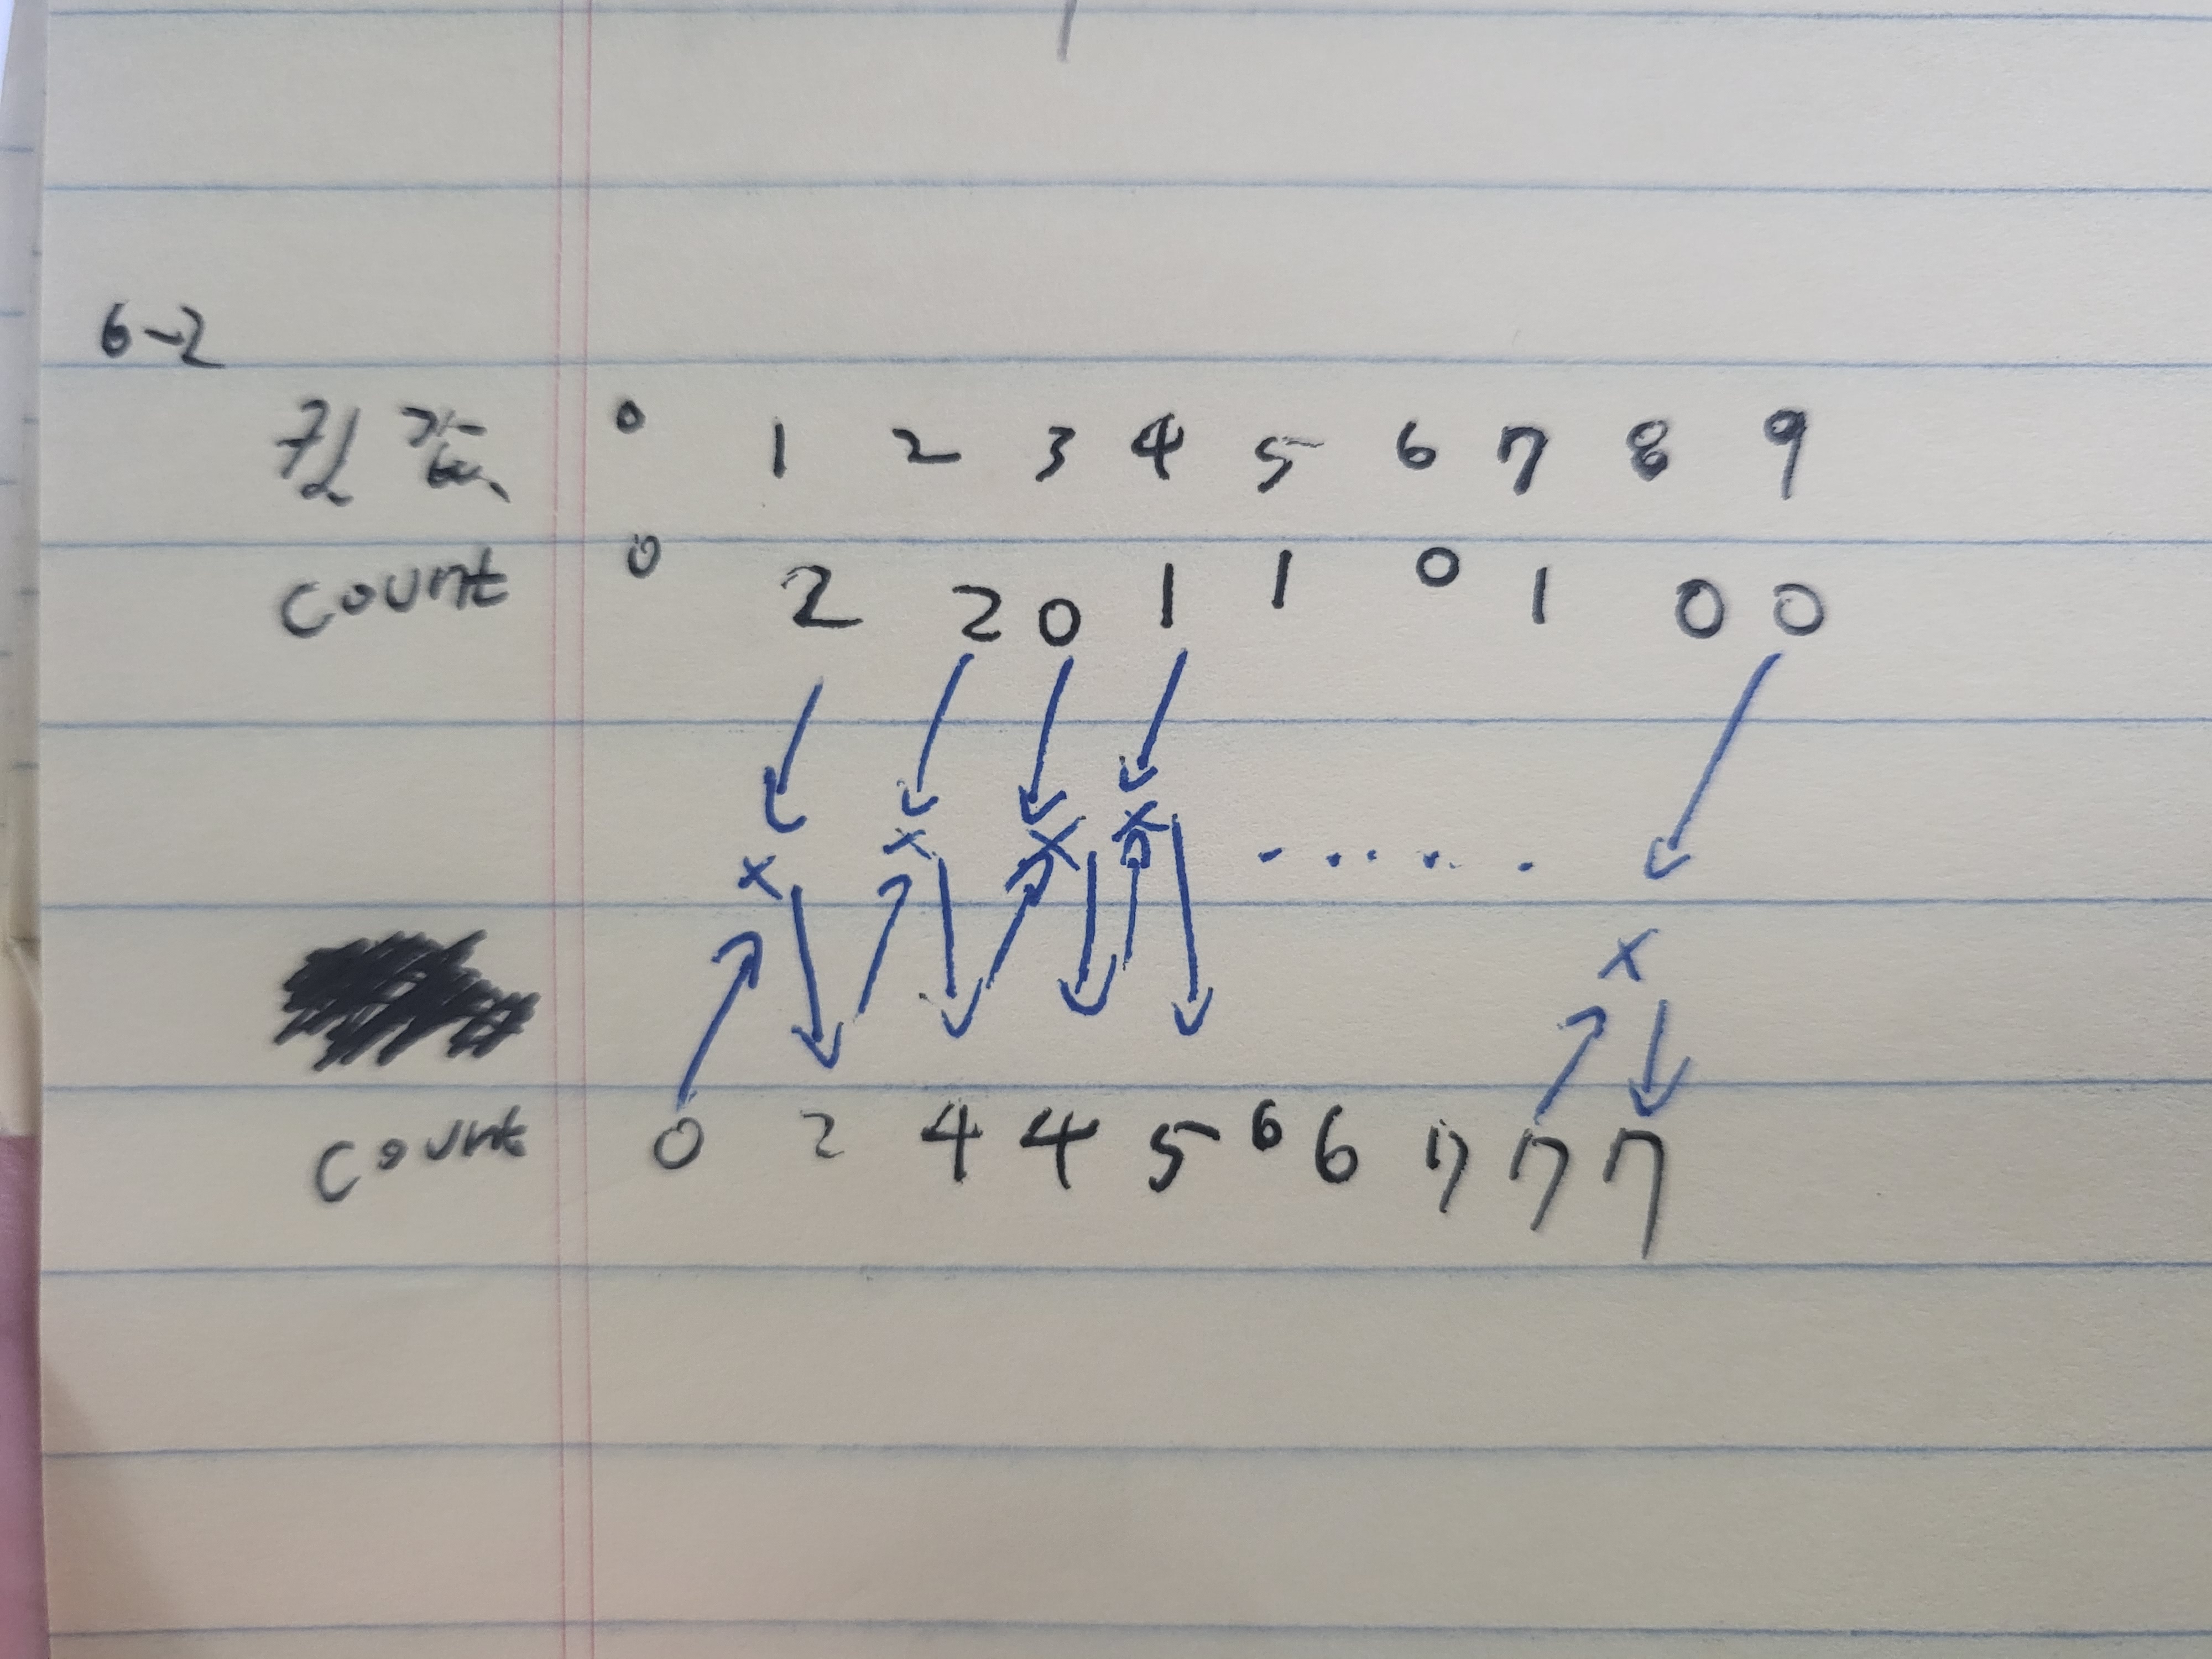 6-2
0 1 2 3 4 5 6 7 8 9
count 0 2 2 0 1 1 0 1 0 0
x x x x ..... x
count 0 2 4 4 5 6 6 7 7 7